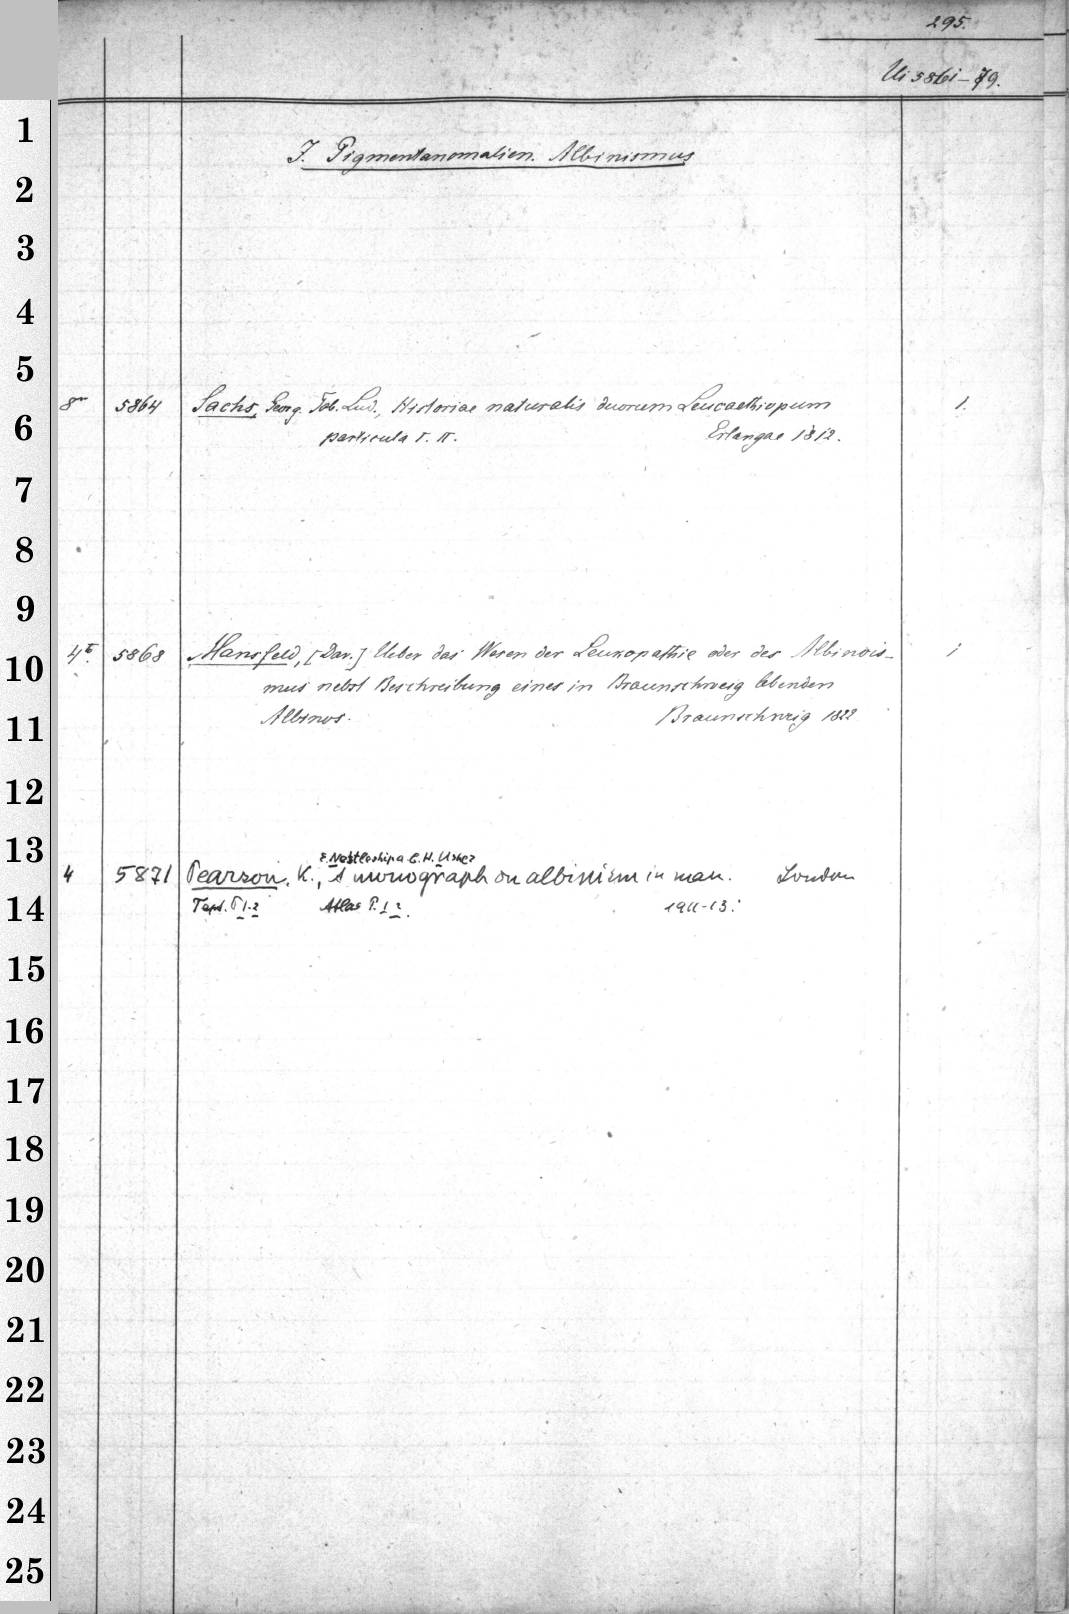 295.
Ui 5861-79.
1
J. Pigmentanomalien. Albinismus
2
3
4
5
8° 5864 Sachs, Georg. Tob. Lud., Historiae naturalis duorum Leucaethiopum 1.
6
particula I. II. Erlangae 1812.
7
8
9
4° 5868 Mansfeld, [Dav.] Ueber das Wesen der Leukopathie oder des Albinois- 1
10
mus nebst Beschreibung eines in Braunschweig lebenden
11
Albinos. Braunschweig 1822
12
13
E. Nettleship a C. H. Usher
4 5871 Pearson, K., A monograph on albinism in man. London
14
Text. P 1.2 Atlas P. 1 2. 1911-13.
15
16
17
18
19
20
21
22
23
24
25